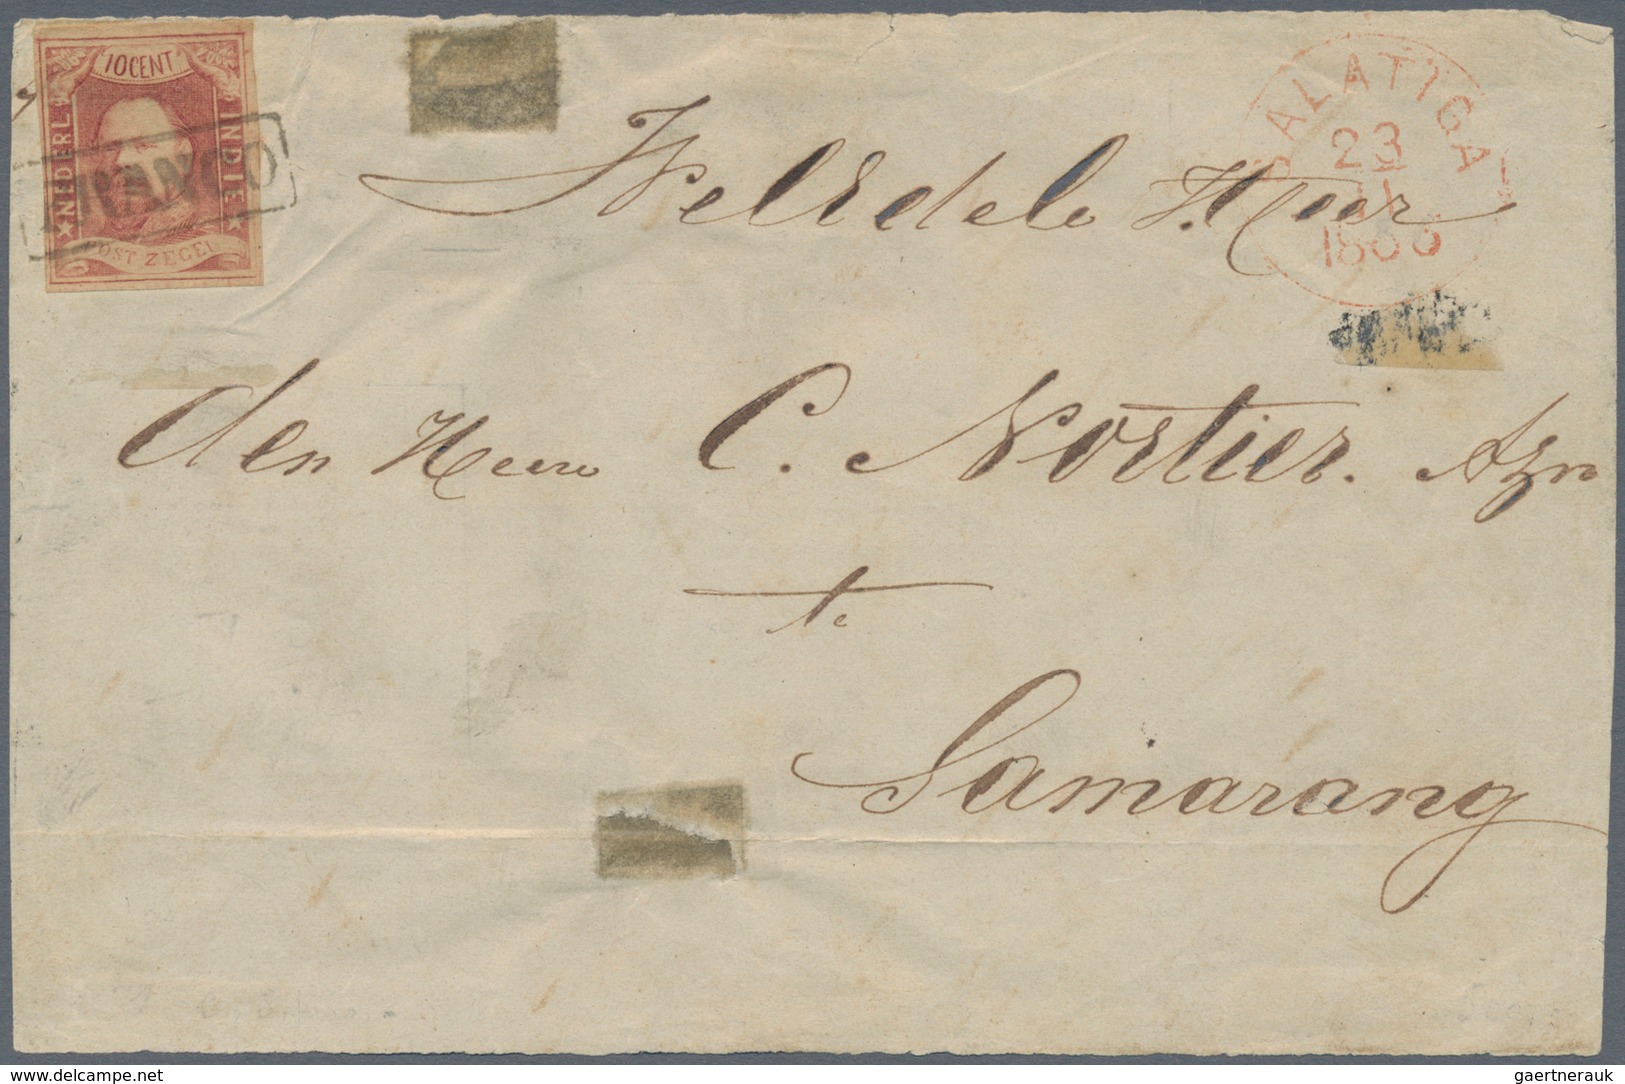 10 CENT
NEDERL. INDIE
POST ZEGEL
FRANCO
SALATIGA
23
11
1866
WelEdele Heer
den Heer C. Nortier. Azn
te
Samarang
delcampe.net
gaertnerauk